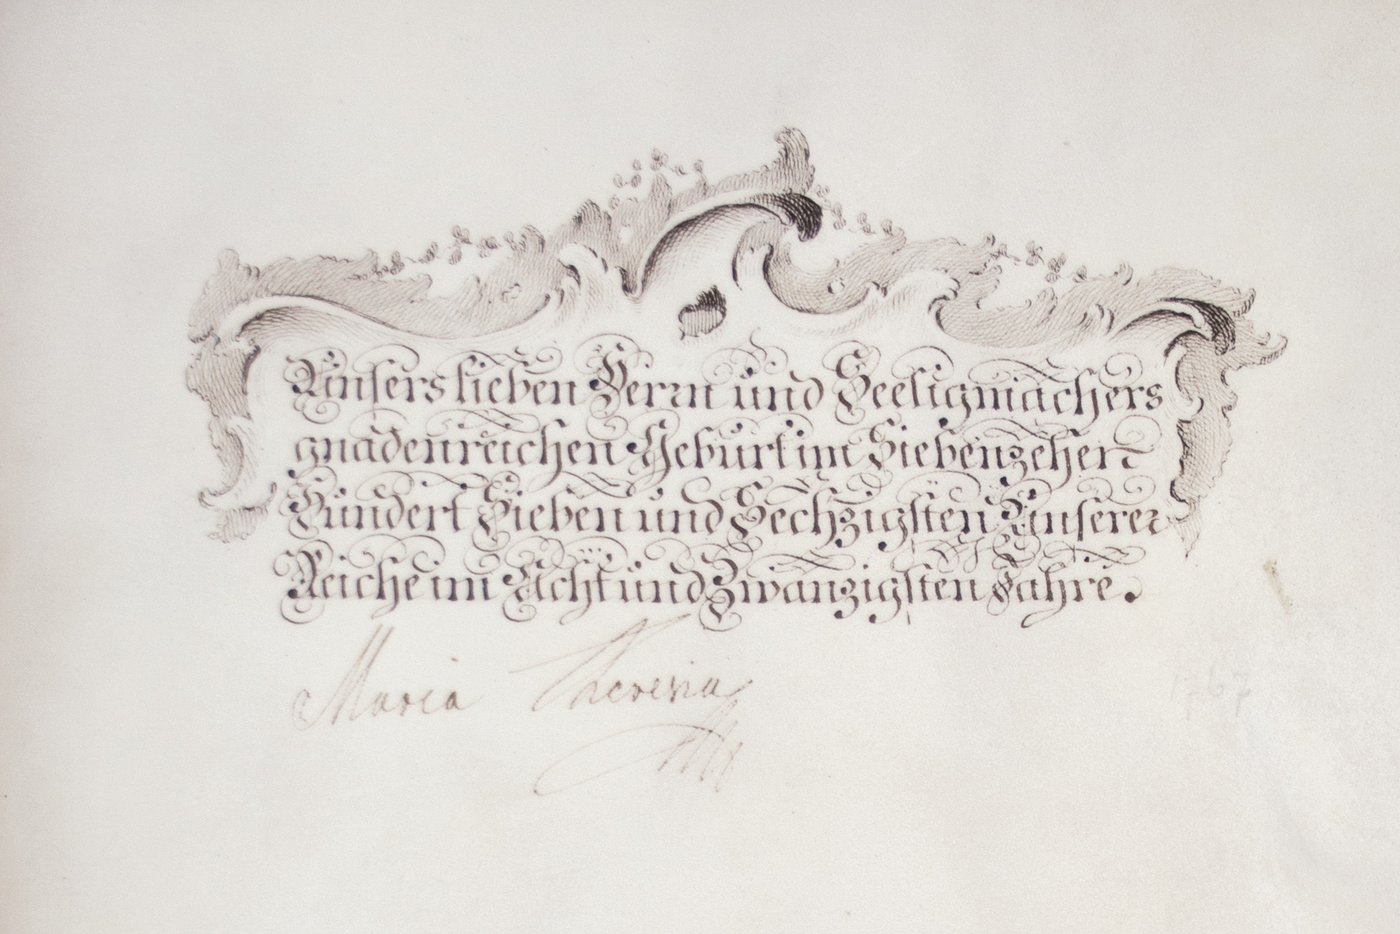 Unsers lieben Herrn und Seeligmachers
gnadenreichen Geburt im Siebenzehen
Hundert Sieben und Sechzigsten Unserer
Reiche im Acht und Zwanzigsten Jahre.
Maria Theresia
1767